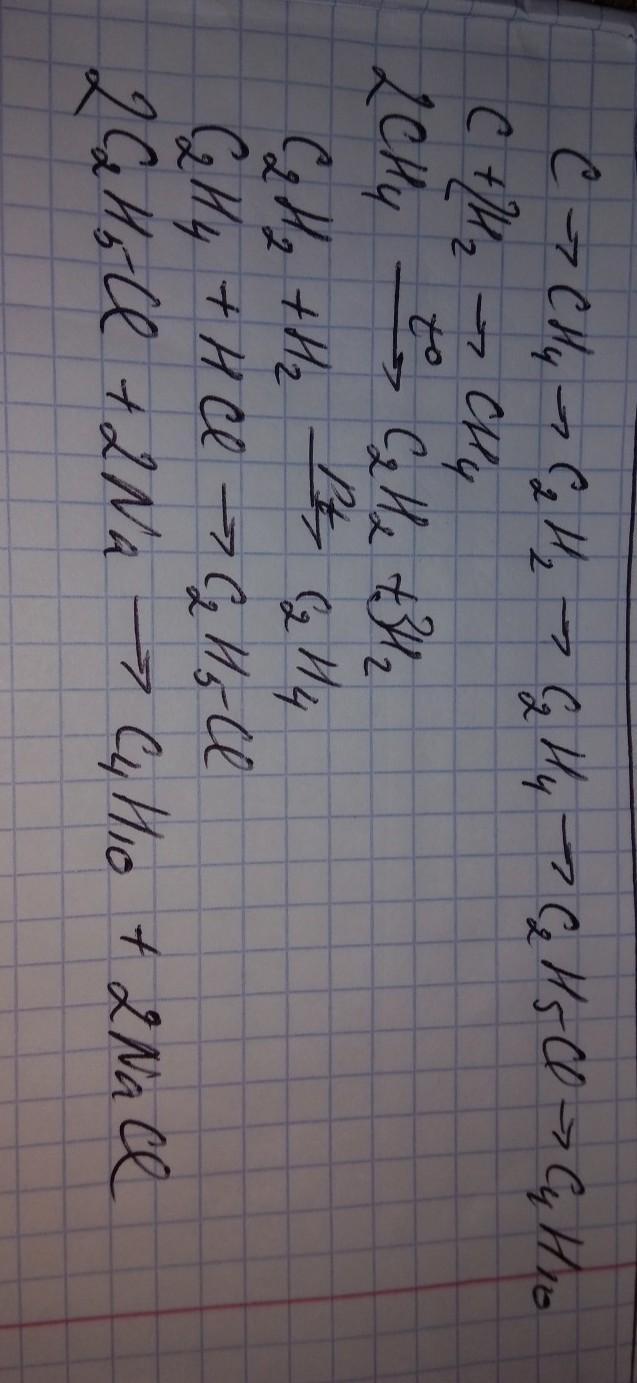 C → CH₄ → C₂H₂ → C₂H₄ → C₂H₅Cl → C₄H₁₀
C + 2H₂ → CH₄
2CH₄ →t° C₂H₂ + 3H₂
C₂H₂ + H₂ →Pt C₂H₄
C₂H₄ + HCl → C₂H₅Cl
2C₂H₅Cl + 2Na → C₄H₁₀ + 2NaCl